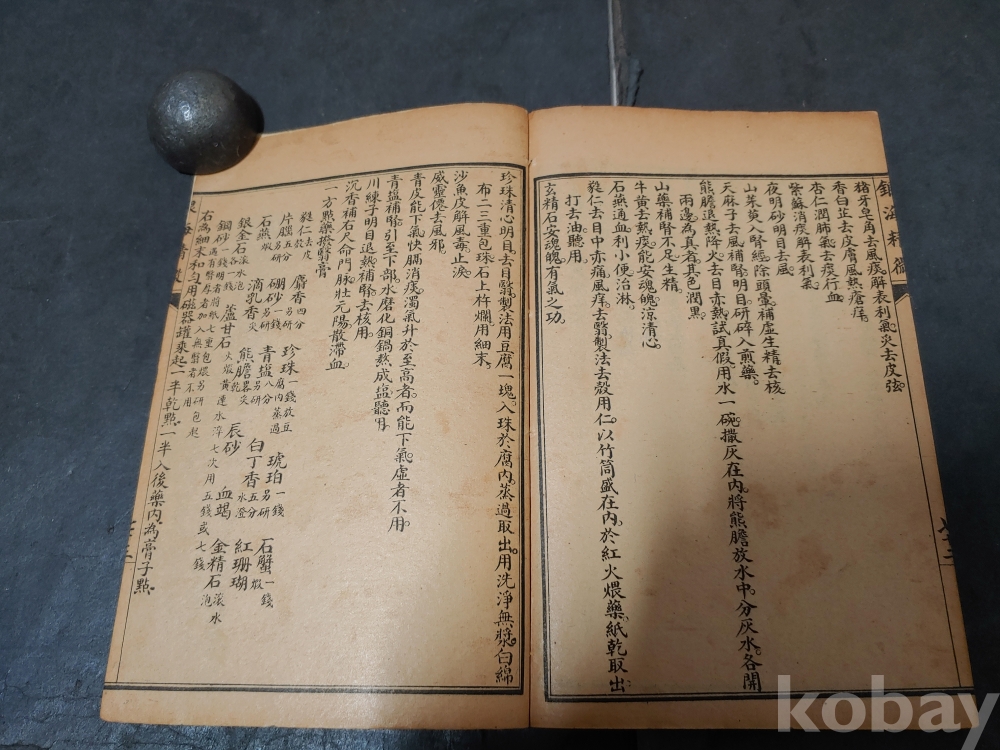 銀海精微
猪牙皂角去風痰解表利氣炙去皮弦
香白芷去皮膚風熱瘡痒
杏仁潤肺氣去痰行血
紫蘇消痰解表利氣
夜明砂明目去風
山茱萸入腎經除頭毫補虛生精去核
天麻子去風補腎明目研碎入煎藥
熊膽退熱降火去目赤熱試真假用水一碗撒灰在內將熊膽放水中分灰水各開
兩邊為真者真色潤黑
山藥補腎不足生精
牛黃去熱痰能安魂魄涼清心
石燕通血利小便治淋
蕤仁去目中赤痛風痒去翳製法去殼用仁以竹筒盛在內於紅火煨藥紙乾取出
打去油聽用
玄精石安魂魄有氣之功
珍珠清心明目去目翳製法用豆腐一塊入珠於腐內蒸過取出用洗淨無漿白綿
布二三重包珠石上杵爛用細末
沙魚皮解風毒止淚
威靈僊去風邪
青皮能下氣快膈消痰濁氣升於至高者而能下氣虛者不用
青塩補腎引至下部水磨化銅鍋熬成塩聽用
川練子明目退熱補腎去核用
沉香補右尺命門脉壯元陽散滯血
一方點藥撥翳膏
蕤仁去皮 麝香四分 珍珠一錢放豆腐內蒸過 琥珀一錢另研 石蟹一錢煅
片腦五分另研 硼砂一錢另研 青塩八分另研 白丁香五分水澄 紅珊瑚
石燕煅 滴乳香炙 熊膽炙乾 辰砂 血竭 金精石滚水泡
銀金石滚水泡各一錢 蘆甘石火煅黃連水淬七次用五錢或七錢
硇砂一錢
右為細末和勻用磁器罐乘起一半乾點一半入後藥內為膏子點